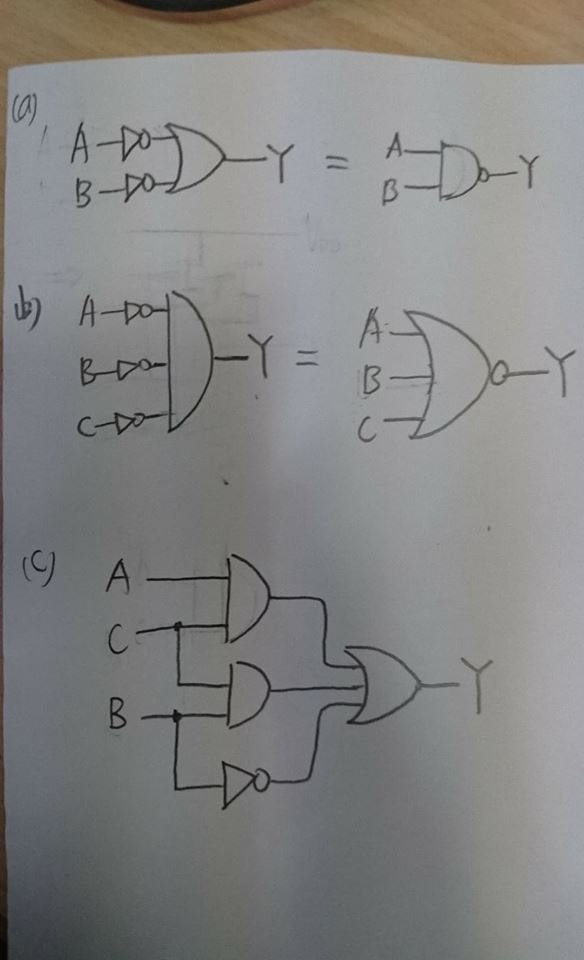 (a)
A
B
Y
=
A
B
Y
b)
A
B
C
Y
=
A
B
C
Y
(c)
A
C
B
Y